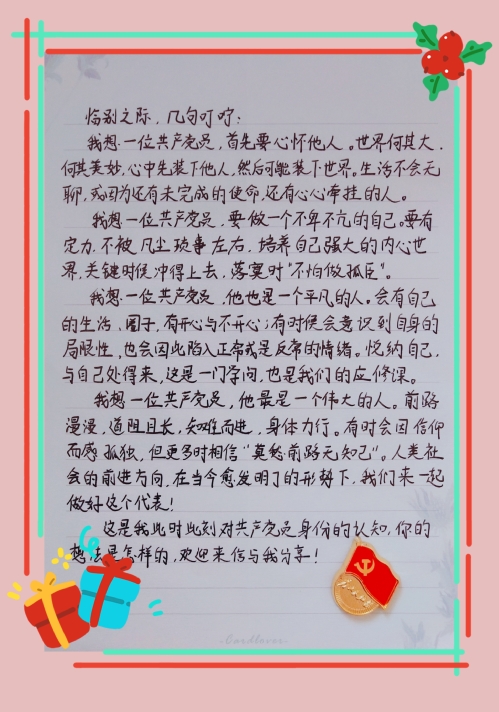 临别之际，几句叮咛：
我想一位共产党员，首先要心怀他人。世界何其大，
何其美妙，心中先装下他人，然后可能装下世界。生活不会无
聊，或因为还有未完成的使命，还有心心牵挂的人。
我想一位共产党员，要做一个不卑不亢的自己。要有
定力，不被凡尘琐事左右，培养自己强大的内心世
界，关键时候冲得上去，落寞时“不怕做孤臣”。
我想一位共产党员，他也是一个平凡的人。会有自己
的生活、圈子，有开心与不开心；有时候会意识到自身的
局限性，也会因此陷入正常或是反常的情绪。悦纳自己，
与自己处得来，这是一门学问，也是我们的应修课。
我想一位共产党员，他最是一个伟大的人。前路
漫漫，道阻且长，知难而进，身体力行。有时会因信仰
而感孤独，但更多时相信“莫愁前路无知己”。人类社
会的前进方向，在当今愈发明了的形势下，我们来一起
做好这个代表！
这是我此时此刻对共产党员身份的认知，你的
想法是怎样的，欢迎来信与我分享！